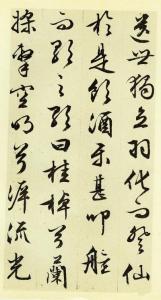 遺世獨立羽化而登仙
於是飲酒樂甚叩舷
而歌之歌曰桂棹兮蘭
槳擊空明兮泝流光